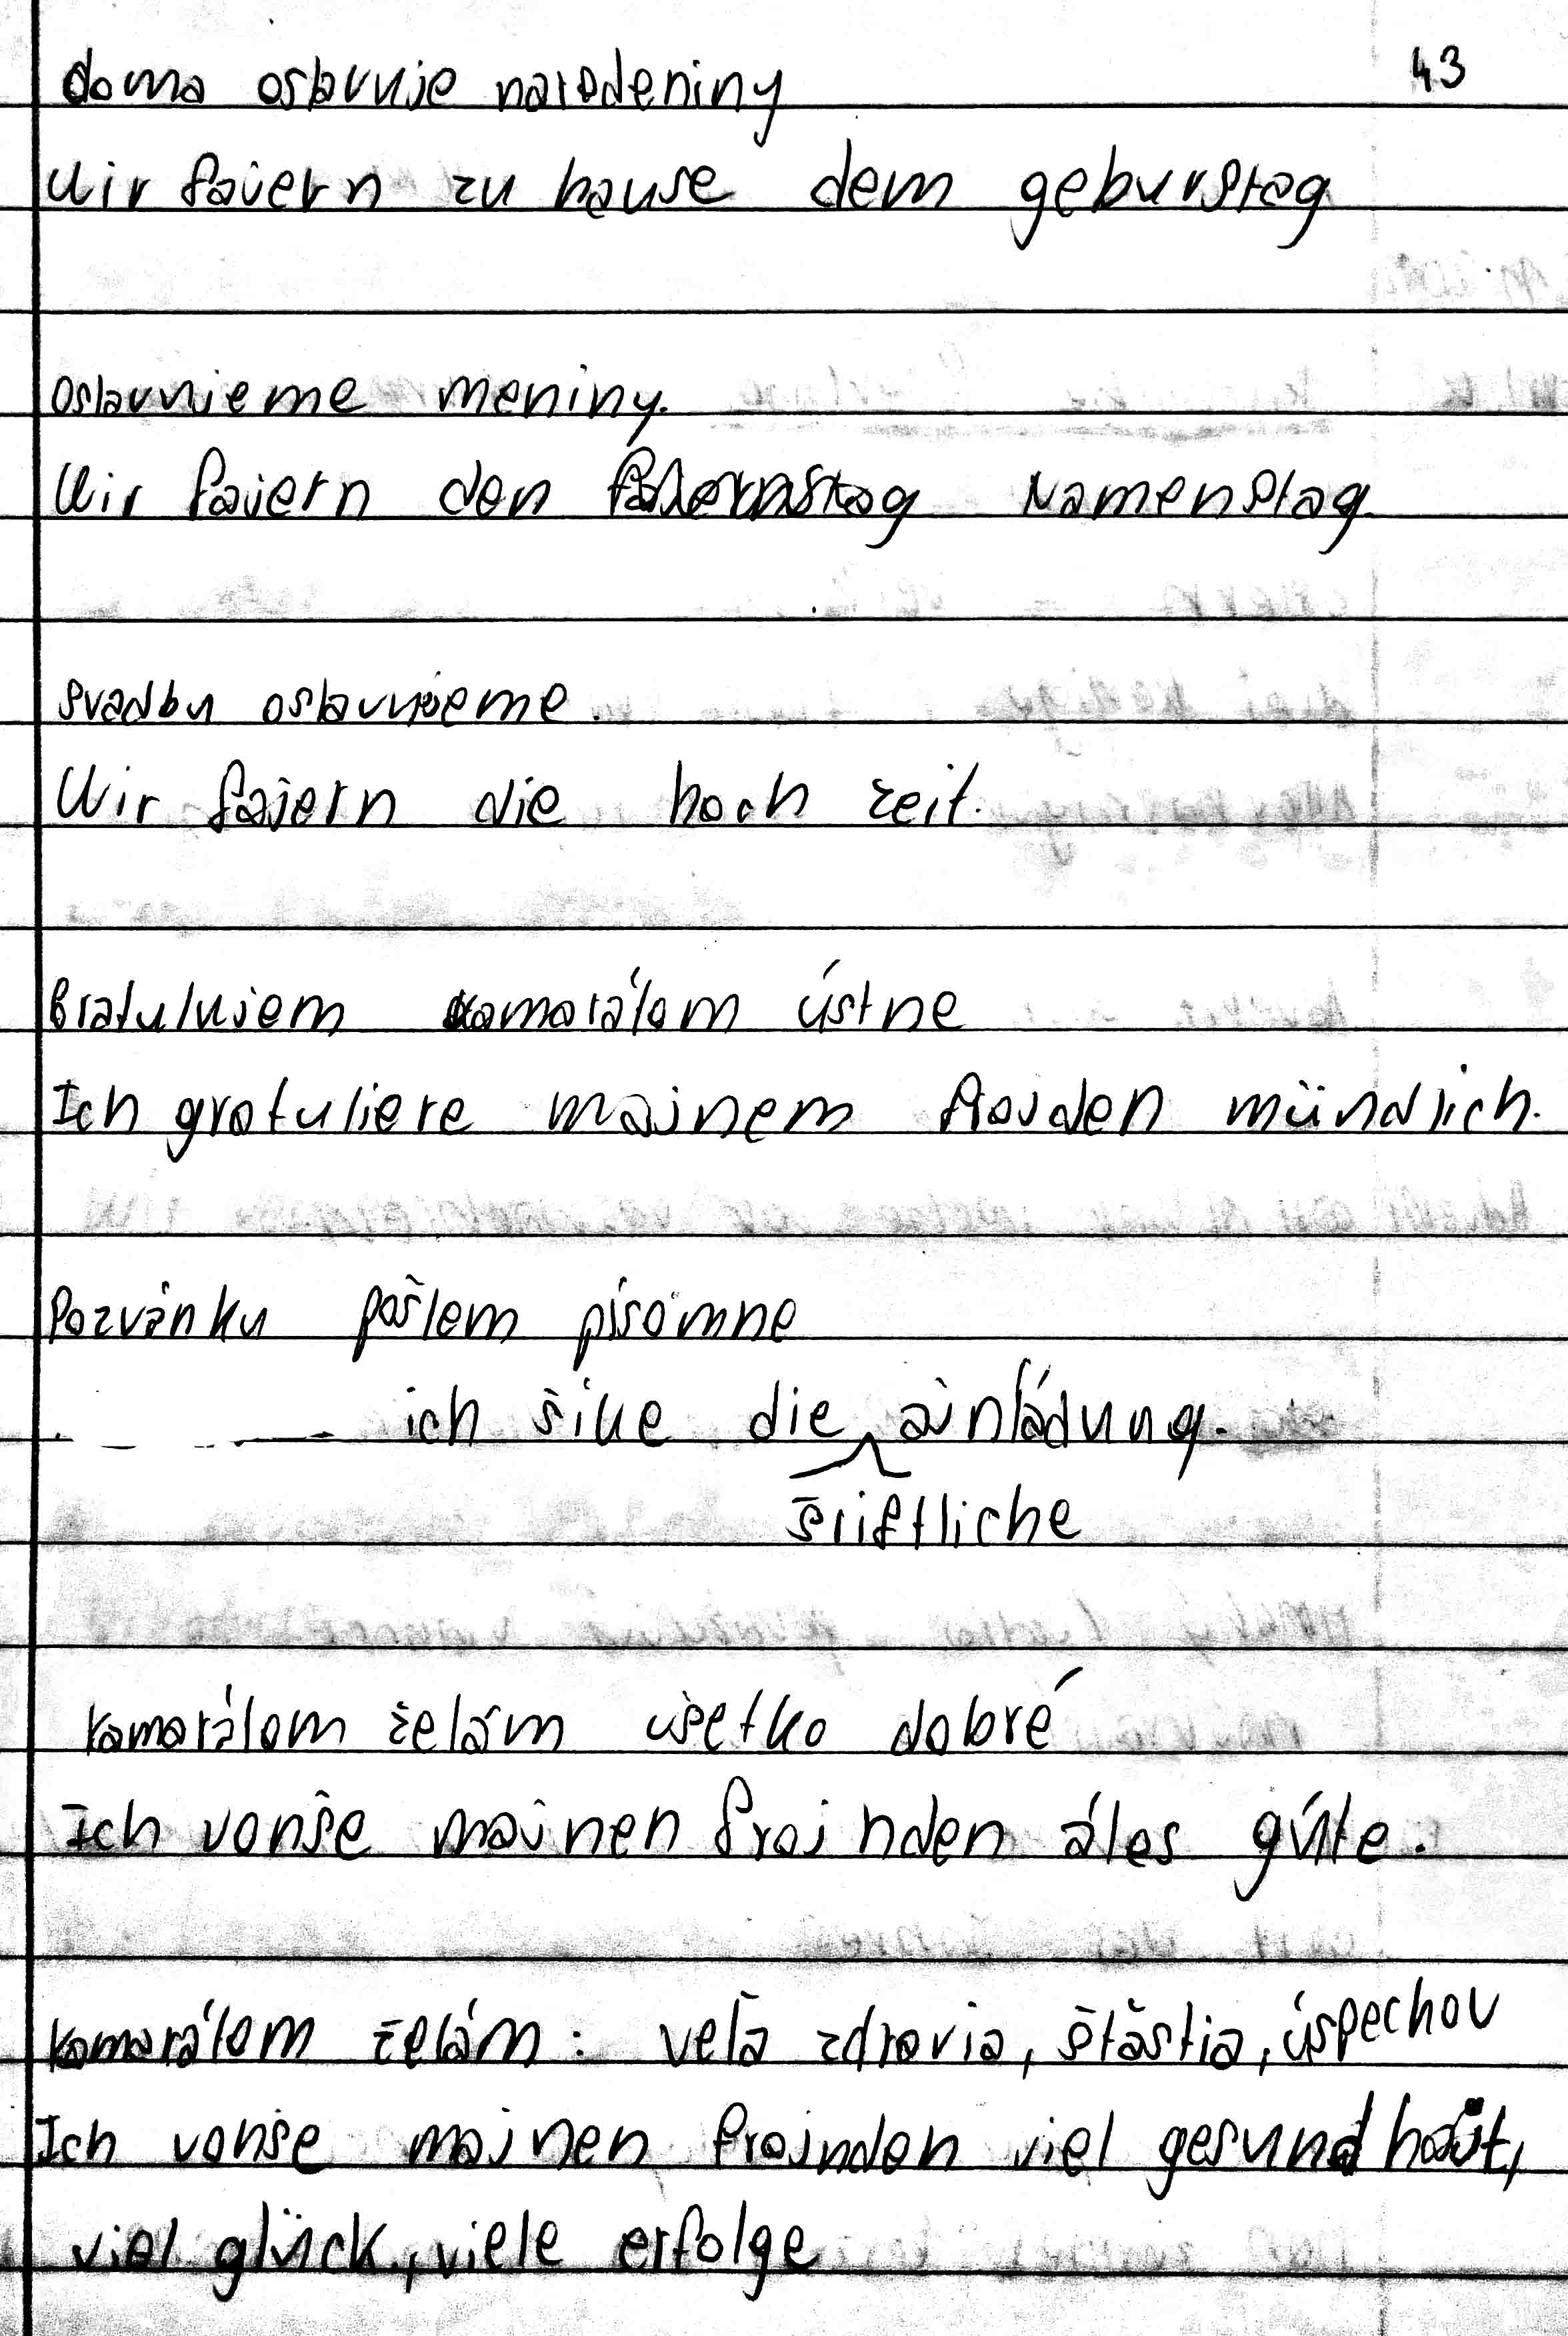 doma oslavuje narodeniny 43
Wir faiern zu hause dem geburstag
oslavujeme meniny.
Wir faiern den Namenstag.
svadbu oslavujeme.
Wir faiern die hoch zeit.
Gratulujem kamarátom ústne
Ich gratuliere mainem froiden mündlich.
Pozvánku pošlem písomne
ich šike die ainládung.
šriftliche
kamarátom želám všetko dobré
Ich vonše mainen froinden áles gúte.
kamarátom želám: veľa zdravia, šťastia, úspechov
Ich vonše mainen froinden viel gesund hait,
viel glück, viele erfolge